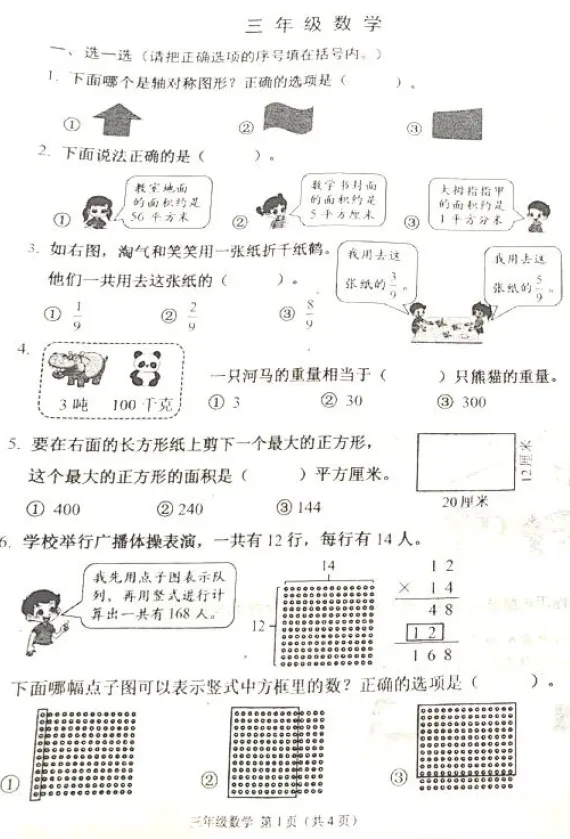 三年级数学
一、选一选（请把正确选项的序号填在括号内。）
1. 下面哪个是轴对称图形？正确的选项是（　　）。
① ② ③
2. 下面说法正确的是（　　）。
① 教室地面的面积约是56 平方米 ② 数学书封面的面积约是5 平方厘米 ③ 大拇指指甲的面积约是1 平方分米
3. 如右图，淘气和笑笑用一张纸折千纸鹤。
他们一共用去这张纸的（　　）。
① 1/9 ② 2/9 ③ 8/9
我用去这张纸的 3/9 。
我用去这张纸的 5/9 。
4.
3 吨 100 千克
一只河马的重量相当于（　　）只熊猫的重量。
① 3 ② 30 ③ 300
5. 要在右面的长方形纸上剪下一个最大的正方形，
这个最大的正方形的面积是（　　）平方厘米。
① 400 ② 240 ③ 144
12 厘米
20 厘米
6. 学校举行广播体操表演，一共有 12 行，每行有 14 人。
我先用点子图表示队
列，再用竖式进行计
算出一共有 168 人。
14
12
1 2
× 1 4
4 8
1 2
1 6 8
下面哪幅点子图可以表示竖式中方框里的数？正确的选项是（　　）。
① ② ③
三年级数学 第 1 页（共 4 页）